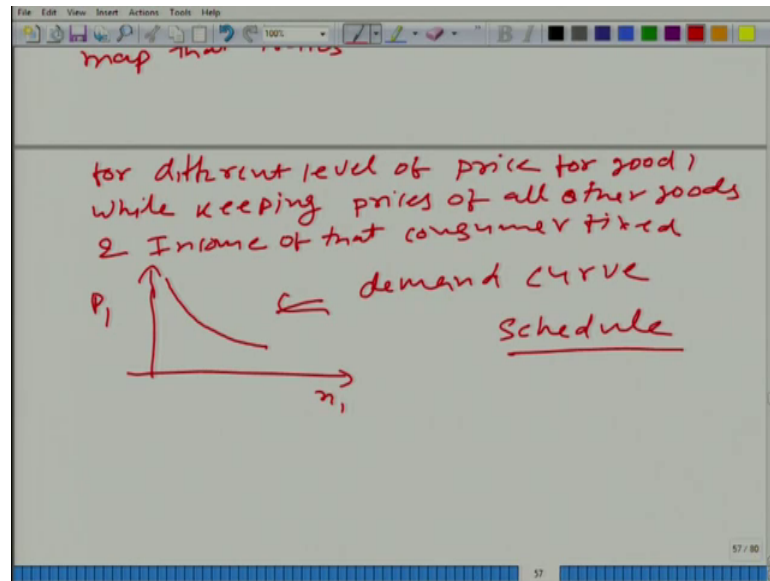 File Edit View Insert Actions Tools Help
100%
map that
for different level of price for good 1
while keeping prices of all other goods
& Income of that consumer fixed
demand curve
P1
schedule
x1
57 / 80
57